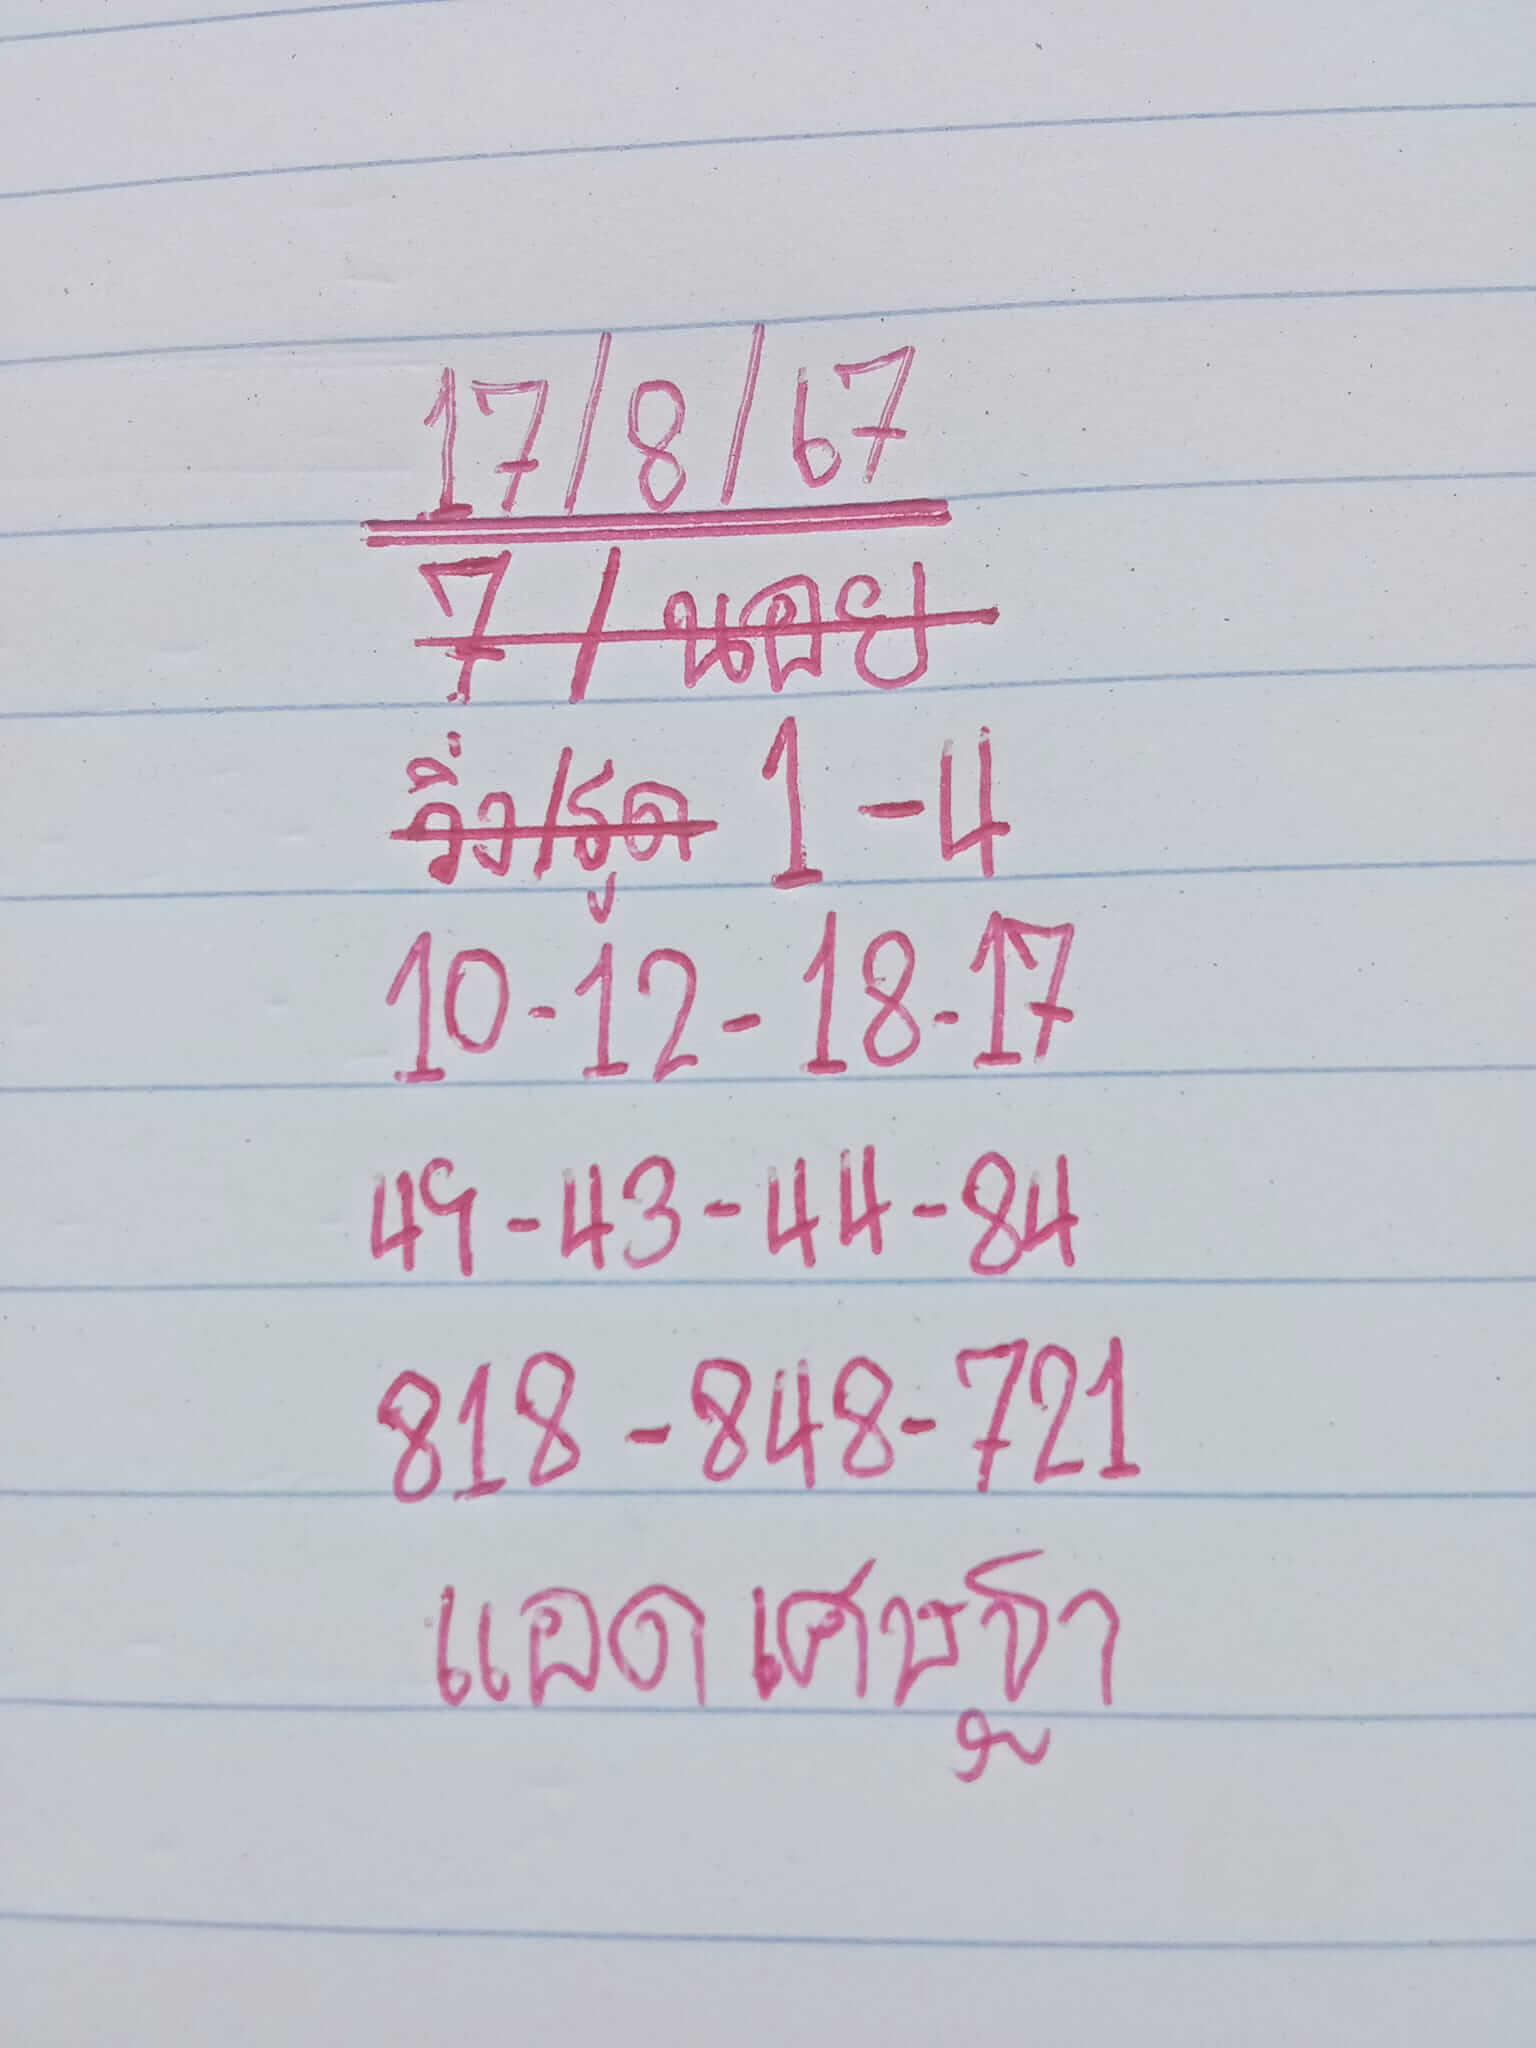 17/8/67
7/นอย
วิ่ง/รูด 1-4
10-12-18-17
49-43-44-84
818-848-721
แอด เศษฐา